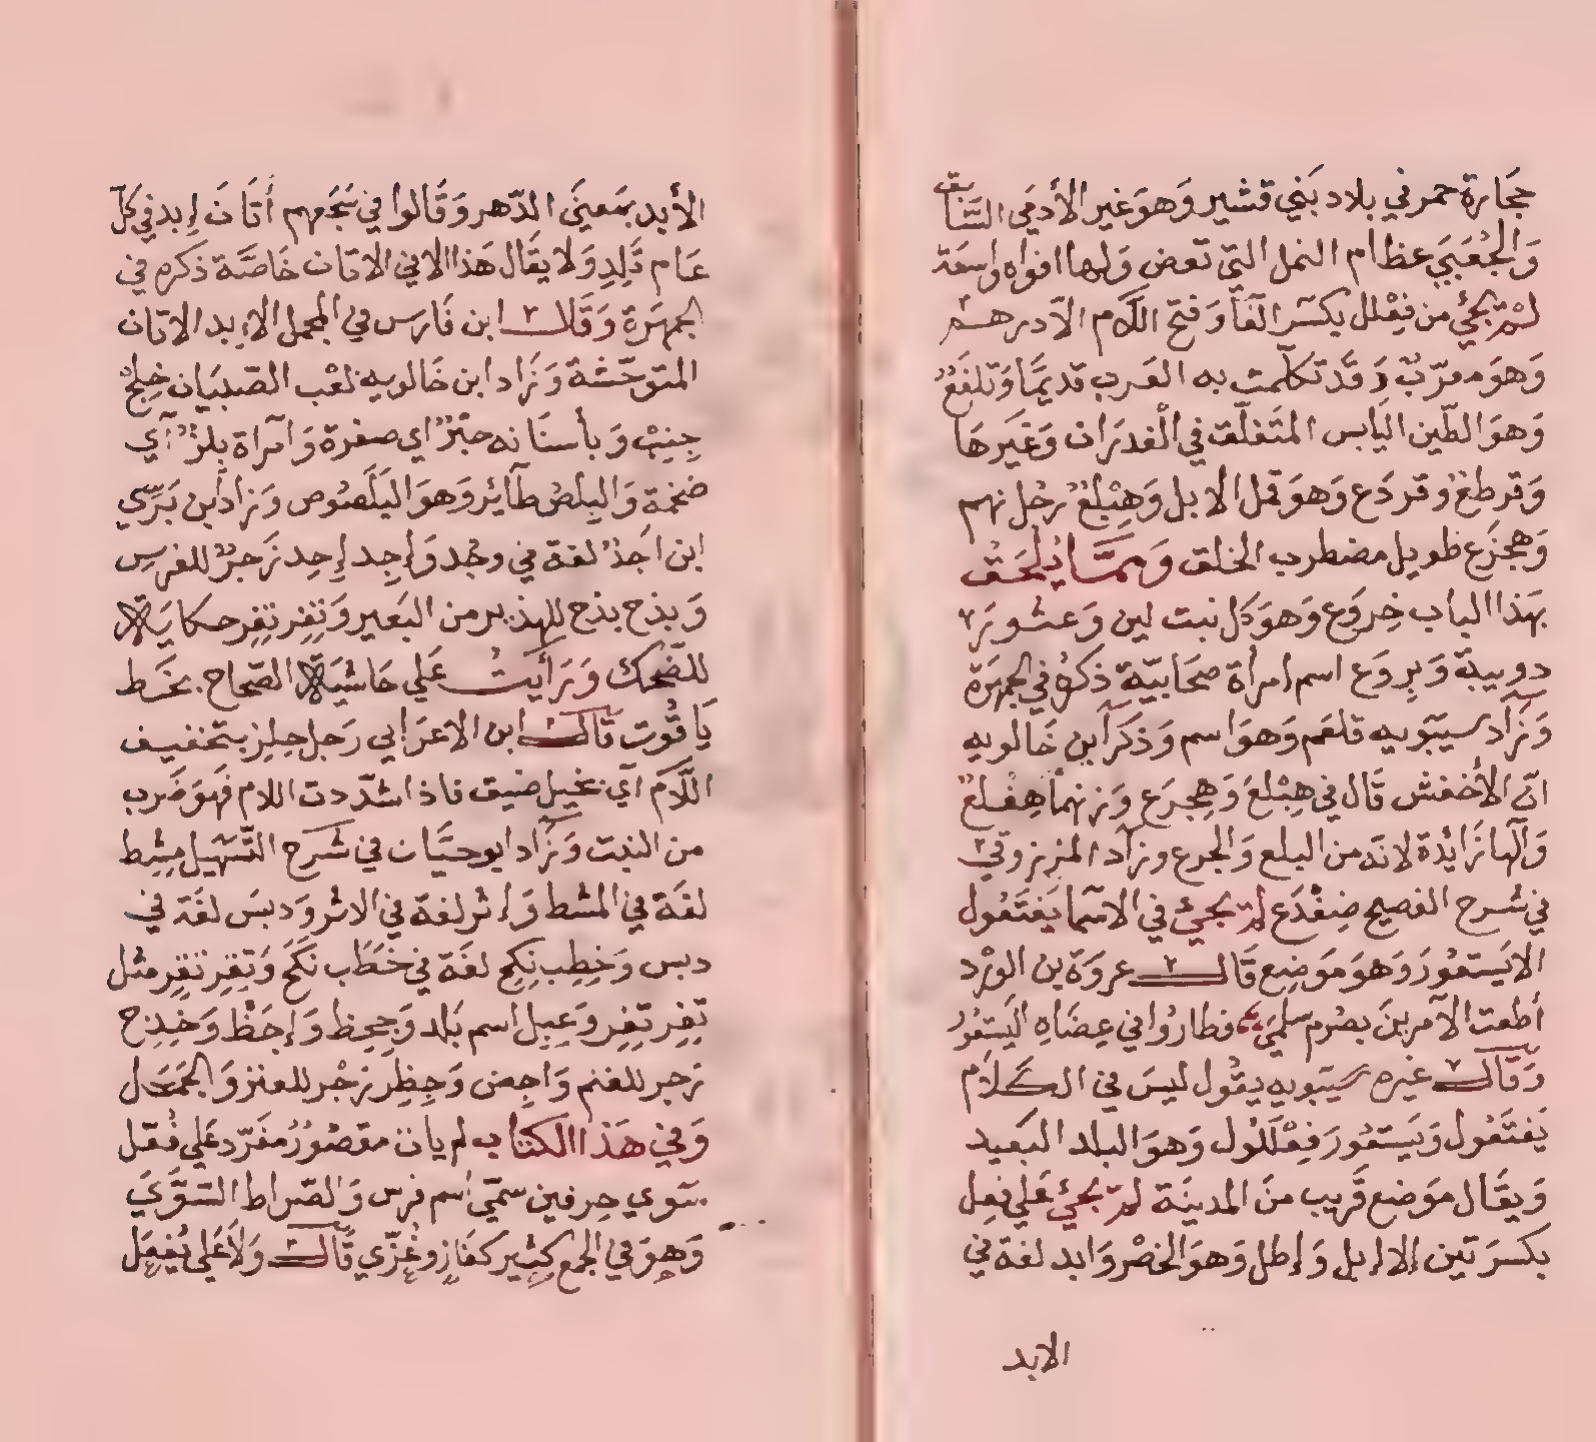 حجَارة حمر في بلاد بَني قشير وَهوَ غير الأدمَى السَّابق
وَالجُعَبَي عظام النمل التي تعض وَلها افواه واسعَة
لمْ يَجئ من فِعْلل بكسْر الفَا وَفتح اللَّام الّا درهم
وَهوَ معرّبٌ وَقَد تكلّمت به العَرب قديمًا وَتلفَعٌ
وَهوَ الطّين اليَابس المتَفلّق في الْغدرَان وَغيَرهَا
وَقرطعٌ وقردَع وَهوَ قمل الابل وَهِبْلعٌ رجُل نهم
وَهجرَع طويل مضطرب الخلق وَممَّا يُلحَق
بهَذا الباب خِروَع وَهوَ كل نبت لين وَعشور
دويبة وَبِروَع اسم امرأة صحَابيّة ذكره في الجمهرَة
وَزَاد سيبَويه قلعَم وَهوَ اسم وَذكَرَ ابن خَالويه
انّ الأخفش قَال في هِبْلعَ وَهِجرَع وَزنهمَا هِفْلعٌ
وَالهَا زَائدة لانّه من البلع وَالجرع وزاد المرزوقيّ
في شرح الفصيح ضِفْدَع لم يَجئ في الاسمَا يَفتَعُول
الا يَستعُورَ وَهوَ مَوَضِع قَال عروَة بن الورْد
أطعت الآمرينَ بصُرم سلمَي فطارُوا في عِضَاهِ اليَستعُور
وَقَال غيره سيبَويه يقُول ليسَ في الكَلَام
يَفتَعُول وَيَستعُورَ فِعْلَلُول وَهوَ البلد البَعيد
وَيقَال موَضع قَريب منَ المدينَة لم يَجئ عَلي فعِل
بكسرَتين الا ابل وَإطل وَهوَ الخصْر وَابد لغة في
الابد
الأبد بمَعنيَ الدّهر وَقَالوا في سَجَعهم أتَانَ إبد في كلّ
عَام تَلِدِ وَلا يقَال هَذا الا في الاتان خَاصَّة ذكره في
الجمهَرَة وَقَال ابن فَارسَ في المجمل الابد الاتان
المتوَحّشة وَزَاد ابن خَالويه لعْب الصّبيَان خِلِجٌ
جِنِبْ وَبأسنَانه حبَرٌ اي صفرة وَامرَاة بِلزٌ أي
ضخمة وَالبِلصُ طآئر وَهوَ البَلَصُوص وَزاد ابن بَرّي
ابن اجَدٌ لغة في وجُد وَإجِد إجِد زَجرٌ للفرسِ
وَبذح بذح للهذير من البَعير وَنِغِر نِغِر حكايَة
للضّحك وَرَأيتُ عَلي حَاشيَة الصّحاح بخَط
يَاقُوت قَال ابن الاعرَابي رَجل حِلِز بتخفيف
اللَّام أي بخيل ضيق فاذا شدّدت اللام فهوَ ضَرب
من النبت وَزَاد ابو حيَّان في شَرح التّسَهيل مِشِط
لغَة في المشط وَإثر لغة في الاثر وَدبسَ لغَة في
دبس وَخِطِب نِكِح لغَة في خَطَب نَكَحَ وَتِغِر تغِر مثل
نِغِر نِغِر وَعِبِل اسم بَلد وَجحِظ وَإجَظ وَخِدِج
زجر للغنم وَاجِض وَجِظِر زجْر للعنز وَالجمَل
وَفي هَذا الكتاب لم يات مقصُورٌ مفَرّد عَلي فُعّل
سَوي حِرفين سمّي اسم فرس وَالصّراط السَوّيَ
وَهوَ في الجمع كثير كغَازٍ وغُزّي قَال وَلَا عَلي يُفِعَل